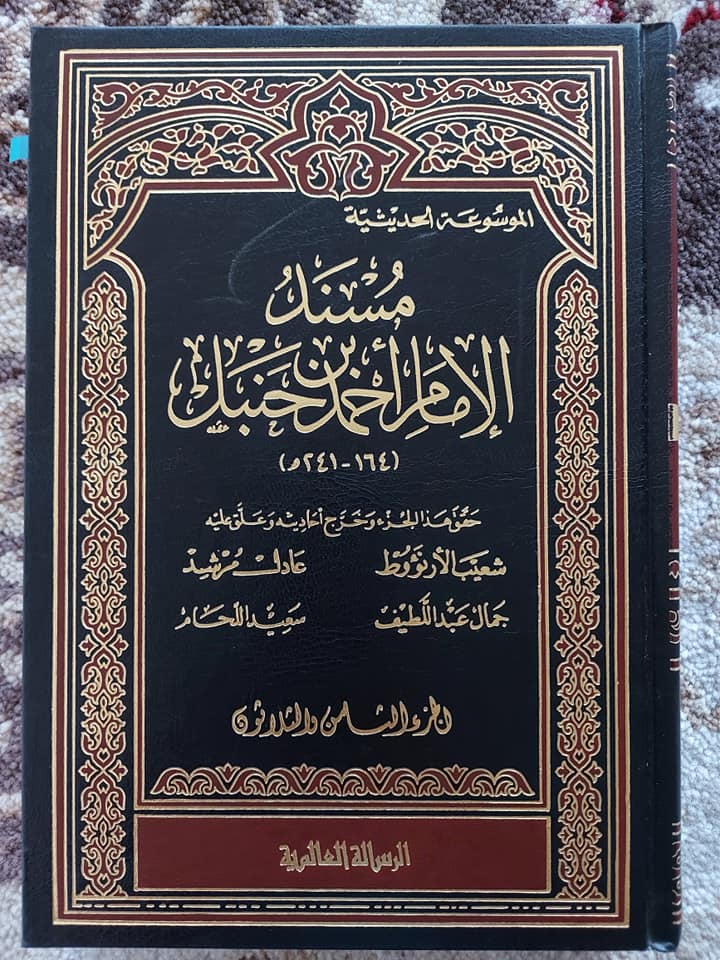 الموسوعة الحديثية
مُسْنَدُ
الإمام أحمد بن حنبل
(١٦٤ - ٢٤١ هـ)
حقق هذا الجزء وخرج أحاديثه وعلق عليه
شعيب الأرنؤوط عادل مرشد
جمال عبد اللطيف سعيد اللحام
الجزء الثامن والثلاثون
الرسالة العالمية